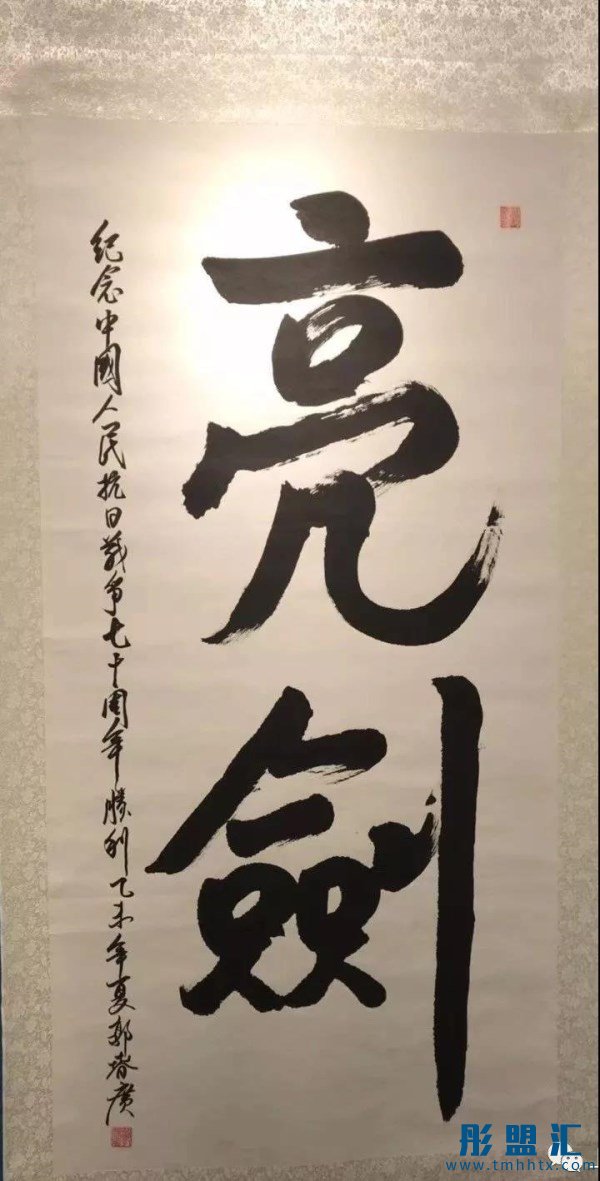 亮劍
紀念中國人民抗日战争七十周年勝利乙未年夏郭春廣
彤盟汇
www.tmhhtx.com